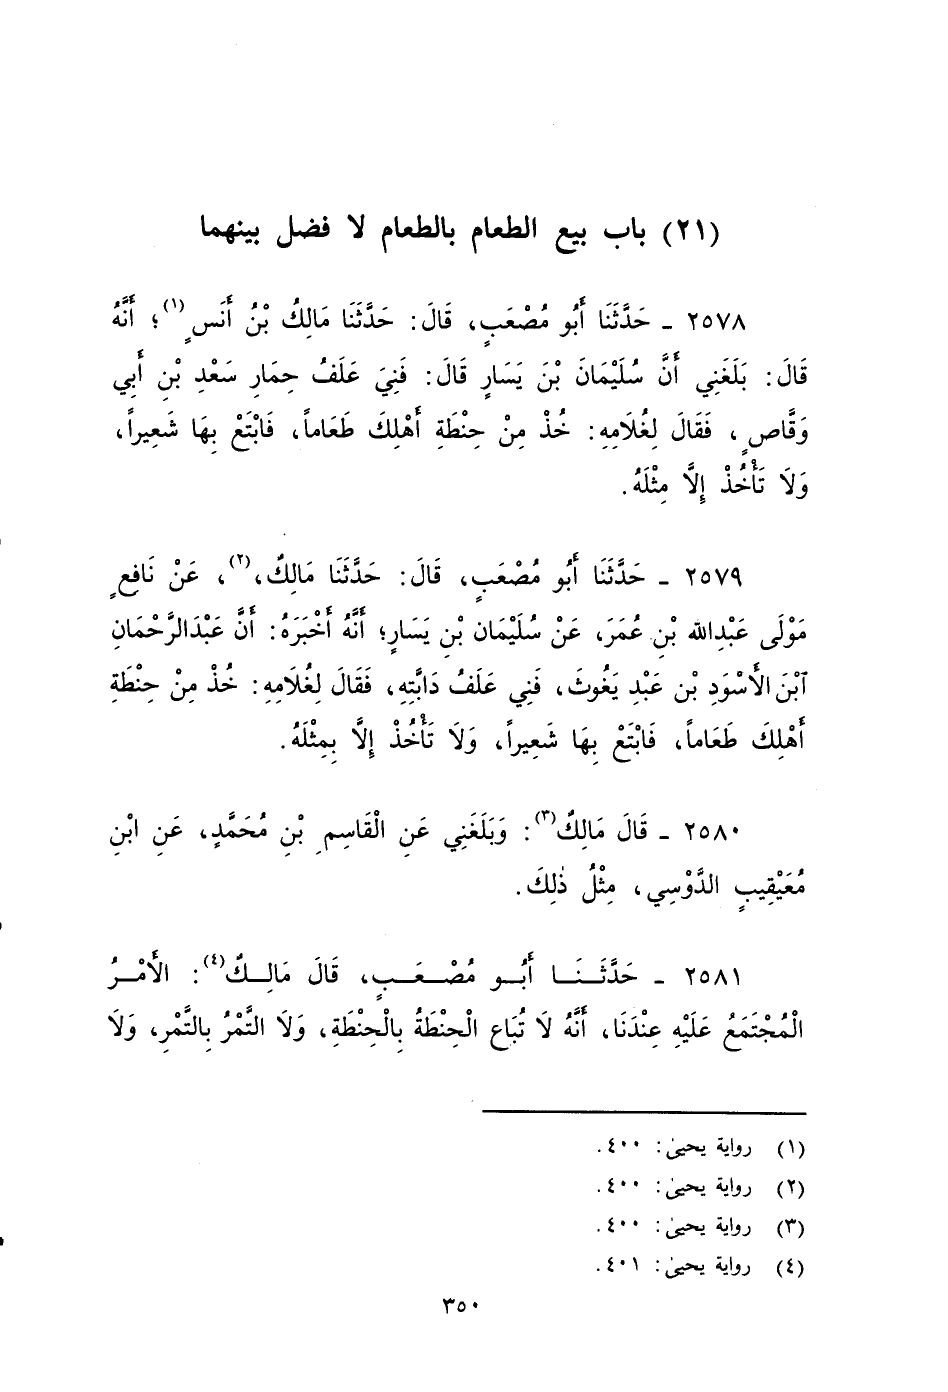 (٢١) باب بيع الطعام بالطعام لا فضل بينهما
٢٥٧٨ ـ حَدَّثَنَا أَبُو مُصْعَبٍ، قَالَ: حَدَّثَنَا مَالِكُ بْنُ أَنَسٍ(١)؛ أَنَّهُ
قَالَ: بَلَغَنِي أَنَّ سُلَيْمَانَ بْنَ يَسَارٍ قَالَ: فَنِيَ عَلَفُ حِمَارِ سَعْدِ بْنِ أَبِي
وَقَّاصٍ، فَقَالَ لِغُلَامِهِ: خُذْ مِنْ حِنْطَةِ أَهْلِكَ طَعَاماً، فَابْتَعْ بِهَا شَعِيراً،
وَلَا تَأْخُذْ إِلَّا مِثْلَهُ.
٢٥٧٩ ـ حَدَّثَنَا أَبُو مُصْعَبٍ، قَالَ: حَدَّثَنَا مَالِكٌ،(٢)، عَنْ نَافِعٍ
مَوْلَى عَبْدِالله بْنِ عُمَرَ، عَنْ سُلَيْمَانَ بْنِ يَسَارٍ؛ أَنَّهُ أَخْبَرَهُ: أَنَّ عَبْدَالرَّحْمَانِ
آبْنَ الأَسْوَدِ بْنِ عَبْدِ يَغُوثَ، فَنِي عَلَفُ دَابَّتِهِ، فَقَالَ لِغُلَامِهِ: خُذْ مِنْ حِنْطَةِ
أَهْلِكَ طَعَاماً، فَابْتَعْ بِهَا شَعِيراً، وَلَا تَأْخُذْ إِلَّا بِمِثْلَهُ.
٢٥٨٠ ـ قَالَ مَالِكٌ(٣): وَبَلَغَنِي عَنِ الْقَاسِمِ بْنِ مُحَمَّدٍ، عَنِ ابْنِ
مُعَيْقِيبٍ الدَّوْسِي، مِثْلُ ذٰلِكَ.
٢٥٨١ ـ حَدَّثَنَا أَبُو مُصْعَبٍ، قَالَ مَالِكٌ(٤): الأَمْرُ
الْمُجْتَمَعُ عَلَيْهِ عِنْدَنَا، أَنَّهُ لَا تُبَاع الْحِنْطَةُ بِالْحِنْطَةِ، وَلَا التَّمْرُ بِالتَّمْرِ، وَلَا
(١) رواية يحيىٰ: ٤٠٠.
(٢) رواية يحيىٰ: ٤٠٠.
(٣) رواية يحيىٰ: ٤٠٠.
(٤) رواية يحيىٰ: ٤٠١.
٣٥٠